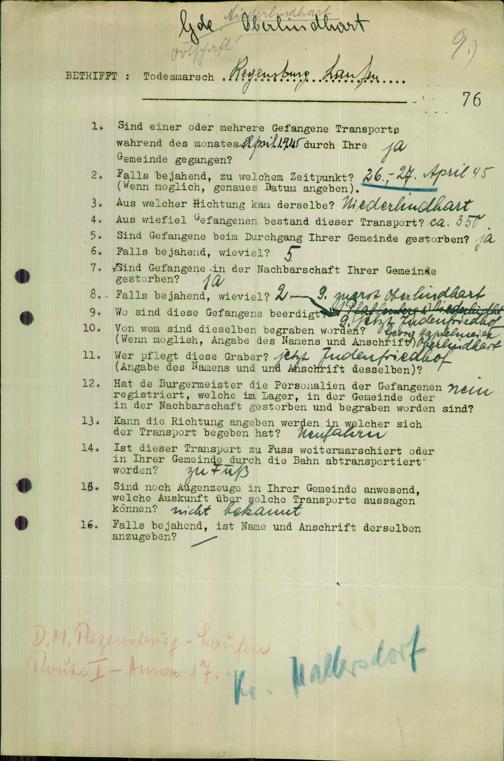 Niederlindhart
Gde. Oberlindhart
Ortschaft
9.)
BETRIFFT : Todesmarsch . Regensburg Laufen ....
76
1. Sind einer oder mehrere Gefangene Transporte
wahrend des monates April 1945 durch Ihre ja
Gemeinde gegangen?
2. Falls bejahend, zu welchem Zeitpunkt? 26.-27. April 45
(Wenn moglich, genaues Datum angeben).
3. Aus welcher Richtung kam derselbe? Niederlindhart
4. Aus wiefiel Gefangenen bestand dieser Transport? ca. 350
5. Sind Gefangene beim Durchgang Ihrer Gemeinde gestorben? ja
6. Falls bejahend, wieviel? 5
7. Sind Gefangene in der Nachbarschaft Ihrer Gemeinde
gestorben? ja
8. Falls bejahend, wieviel? 2 9. zuerst Oberlindhart
9. Wo sind diese Gefangene beerdigt?
9. jetzt Judenfriedhof
10. Von wem sind dieselben begraben worden?
(Wenn moglish, Angabe des Namens und Anschrift) Oberlindhart
11. Wer pflegt diese Graber? jetzt Judenfriedhof
(Angabe des Namens und und Anschrift desselben)?
12. Hat de Burgermeister die Personalien der Gefangenen nein
registriert, welche im Lager, in der Gemeinde oder
in der Nachbarschaft gestorben und begraben worden sind?
13. Kann die Richtung angeben werden in welcher sich
der Transport begeben hat? Neufahrn
14. Ist dieser Transport zu Fuss weitermarschiert oder
in Ihrer Gemeinde durch die Bahn abtransportiert
worden? zu Fuß
15. Sind noch Augenzeuge in Ihrer Gemeinde anwesend,
welche Auskunft über solche Transporte aussagen
können? nicht bekannt
16. Falls bejahend, ist Name und Anschrift derselben
anzugeben? —
D.M. Regensburg - Laufen
Route I - Annex 17.
Kr. Mallersdorf